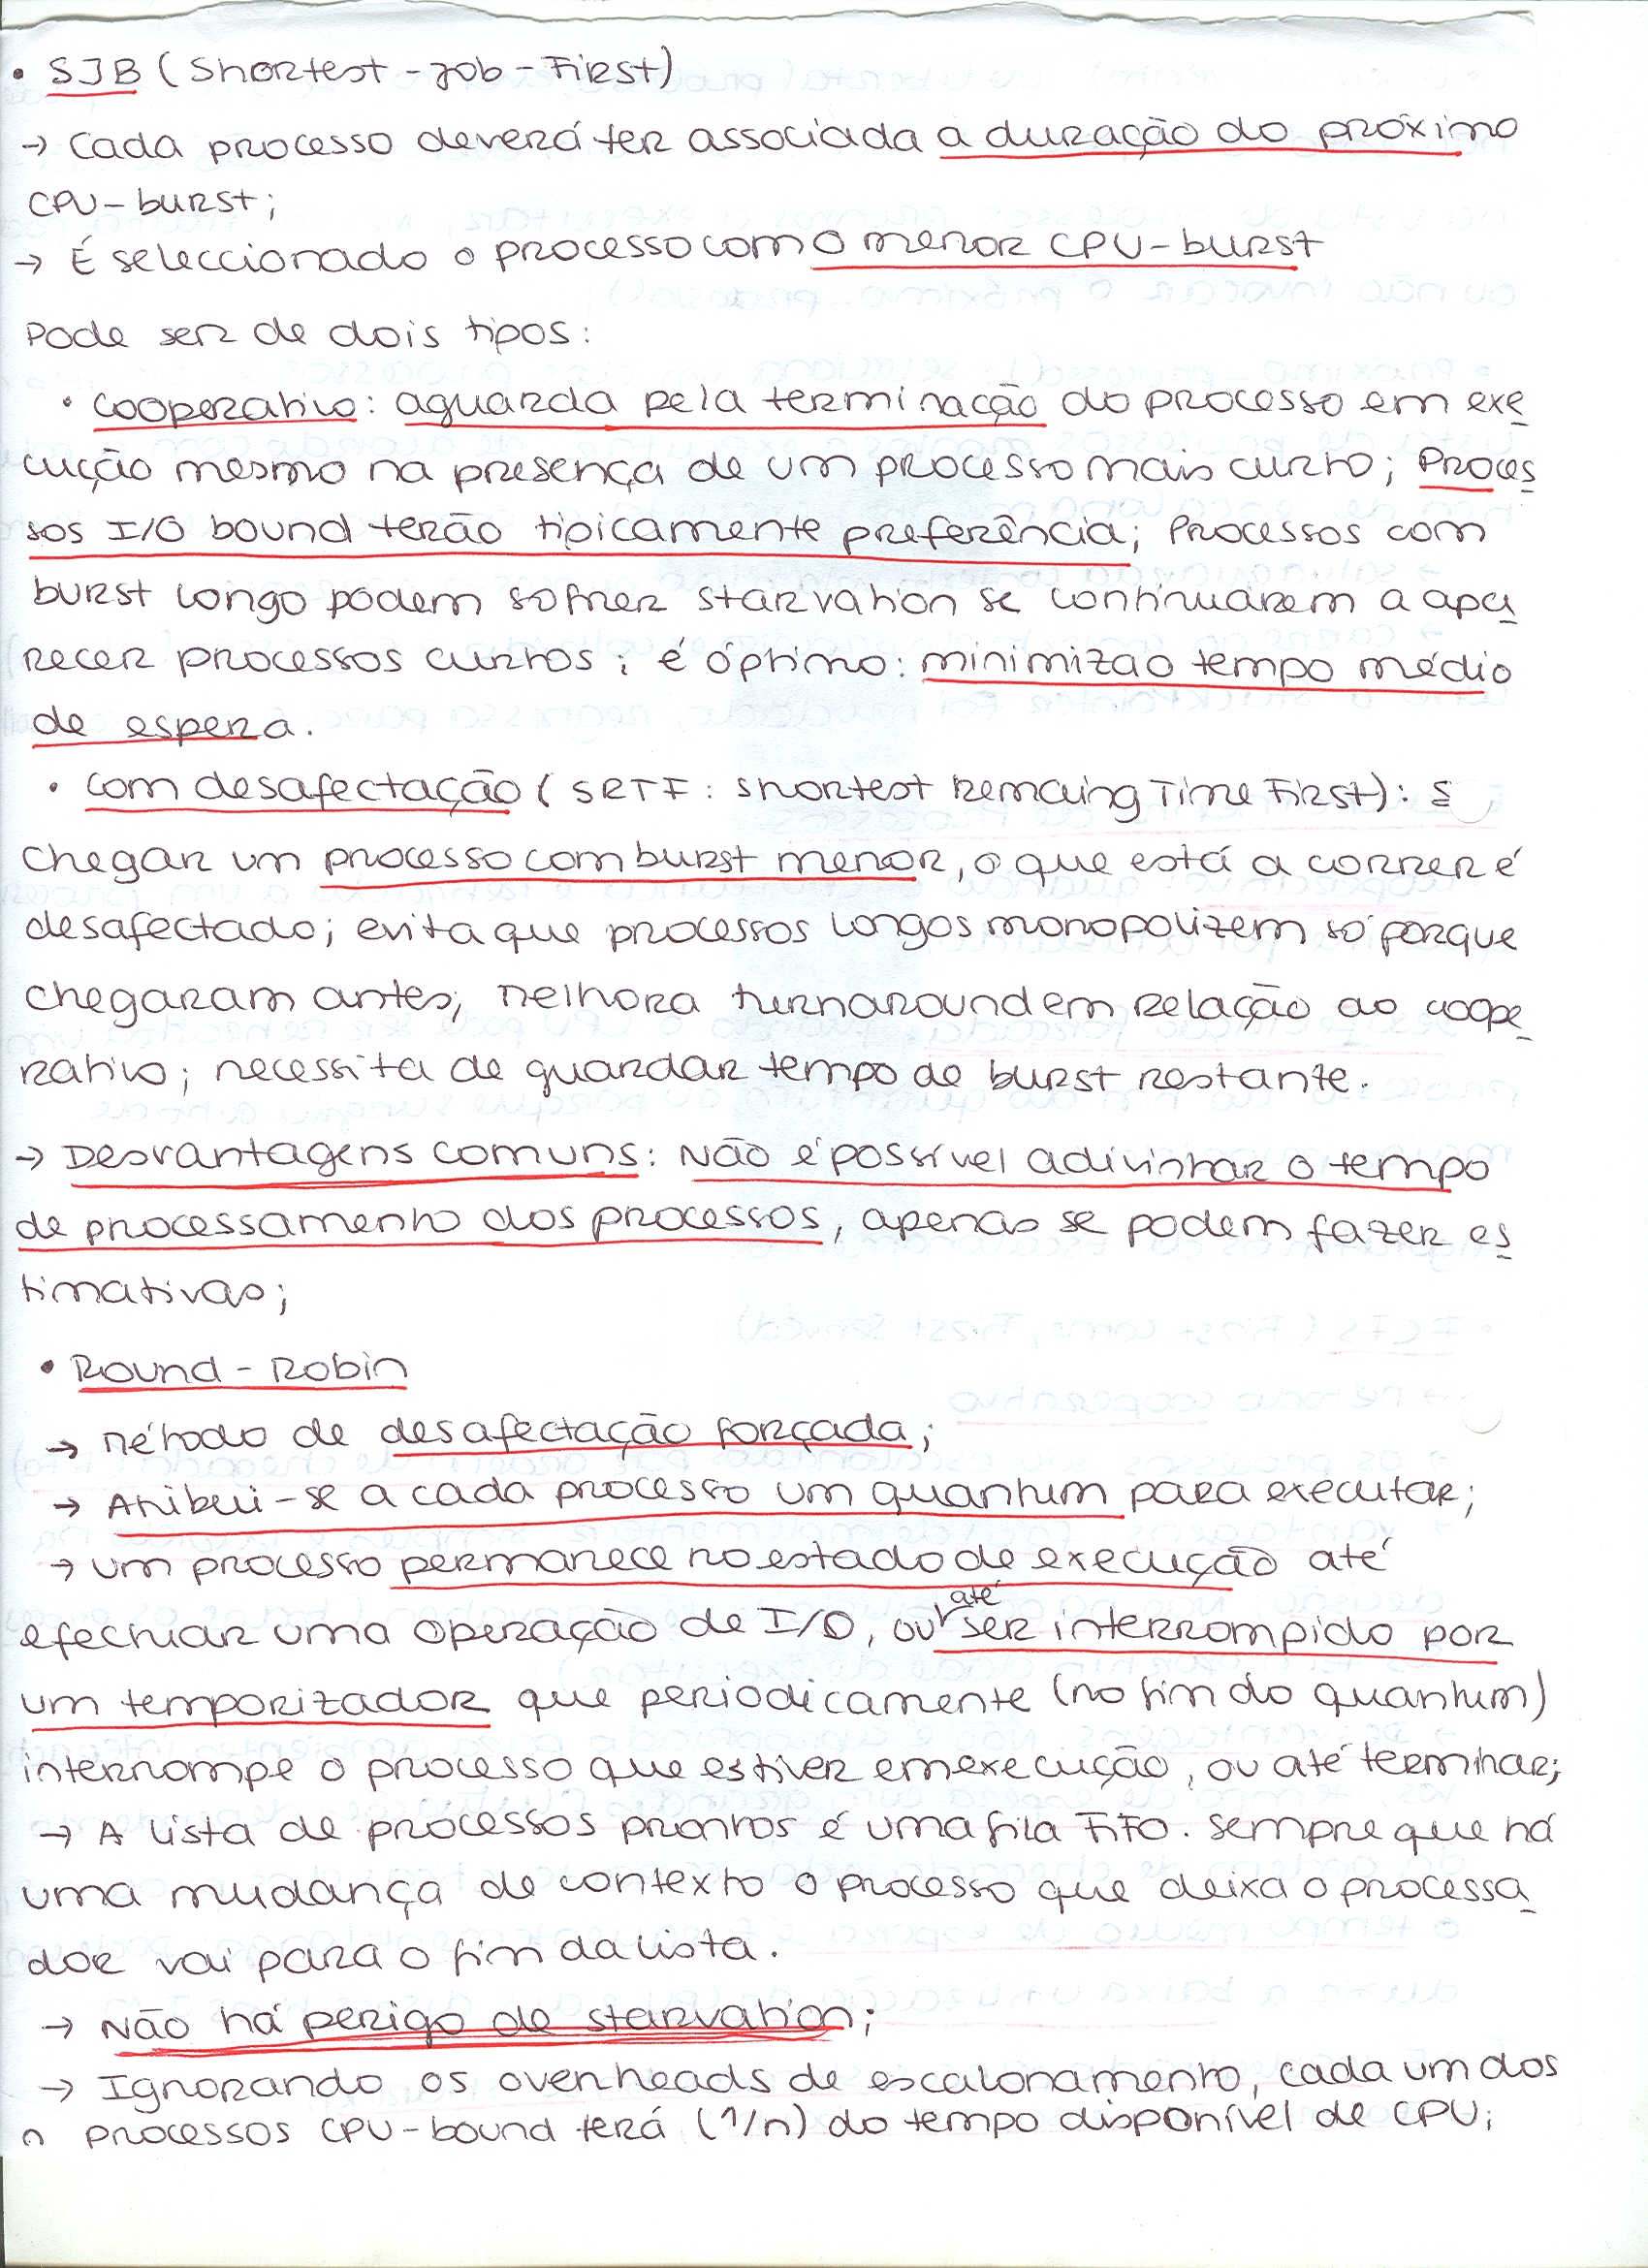 • SJB (Shortest-Job-First)
→ Cada processo deverá ter associada a duração do próximo
CPU-burst;
→ É seleccionado o processo com o menor CPU-burst
Pode ser de dois tipos:
• Cooperativo: aguarda pela terminação do processo em exe
cução mesmo na presença de um processo mais curto; Proces
sos I/O bound terão tipicamente preferência; Processos com
burst longo podem sofrer starvation se continuarem a apa
recer processos curtos; é óptimo: minimiza o tempo médio
de espera.
• Com desafectação (SRTF: Shortest Remaing Time First): s
chegar um processo com burst menor, o que está a correr é
desafectado; evita que processos longos monopolizem só porque
chegaram antes; melhora turnaround em relação ao coope
rativo; necessita de guardar tempo de burst restante.
→ Desvantagens comuns: Não é possível adivinhar o tempo
de processamento dos processos, apenas se podem fazer es
timativas;
• Round-Robin
→ Método de desafectação forçada;
→ Atribui-se a cada processo um quantum para executar;
→ um processo permanece no estado de execução até
efectuar uma operação de I/O, ou até ser interrompido por
um temporizador que periodicamente (no fim do quantum)
interrompe o processo que estiver em execução, ou até terminar;
→ A lista de processos prontos é uma fila FIFO. Sempre que há
uma mudança de contexto o processo que deixa o processa
dor vai para o fim da lista.
→ Não há perigo de starvation;
→ Ignorando os overheads de escalonamento, cada um dos
n processos CPU-bound terá (1/n) do tempo disponível de CPU;